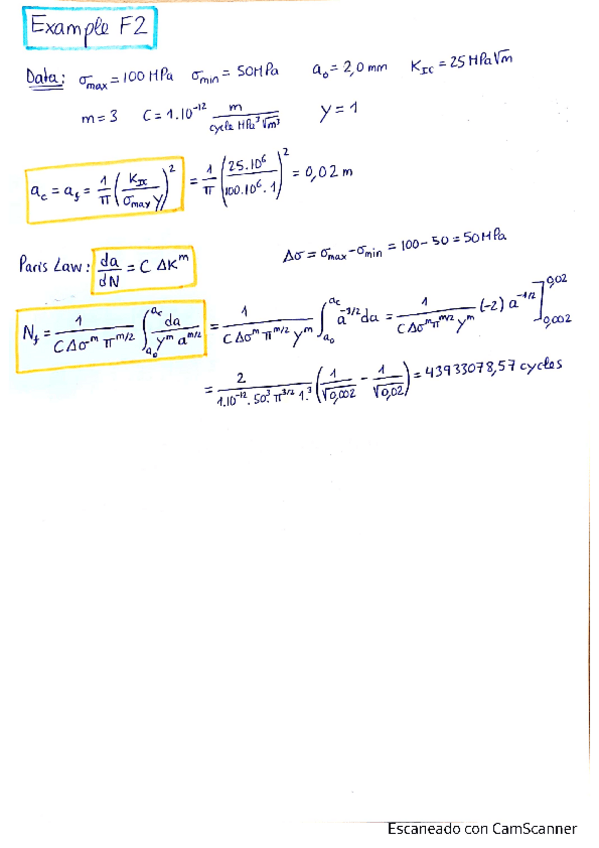 Example F2
Data: σmax = 100 MPa σmin = 50MPa a₀ = 2,0 mm K_IC = 25 MPa√m
m = 3 C = 1.10⁻¹² m / (cycle MPa³ √m³) Y = 1
a_c = a_f = 1/π (K_IC / (σmax Y))² = 1/π (25.10⁶ / (100.10⁶.1))² = 0,02 m
Paris Law: da/dN = C ΔK^m Δσ = σmax - σmin = 100 - 50 = 50 MPa
N_f = 1/(C Δσ^m π^(m/2)) ∫_a₀^a_c da/(Y^m a^(m/2)) = 1/(C Δσ^m π^(m/2) Y^m) ∫_a₀^a_c a^(-3/2) da = 1/(C Δσ^m π^(m/2) Y^m) (-2) a^(-1/2) ]_0,002^0,02
= 2/(1.10⁻¹² . 50³ . π^(3/2) 1.³) (1/√0,002 - 1/√0,02) = 43933078,57 cycles
Escaneado con CamScanner